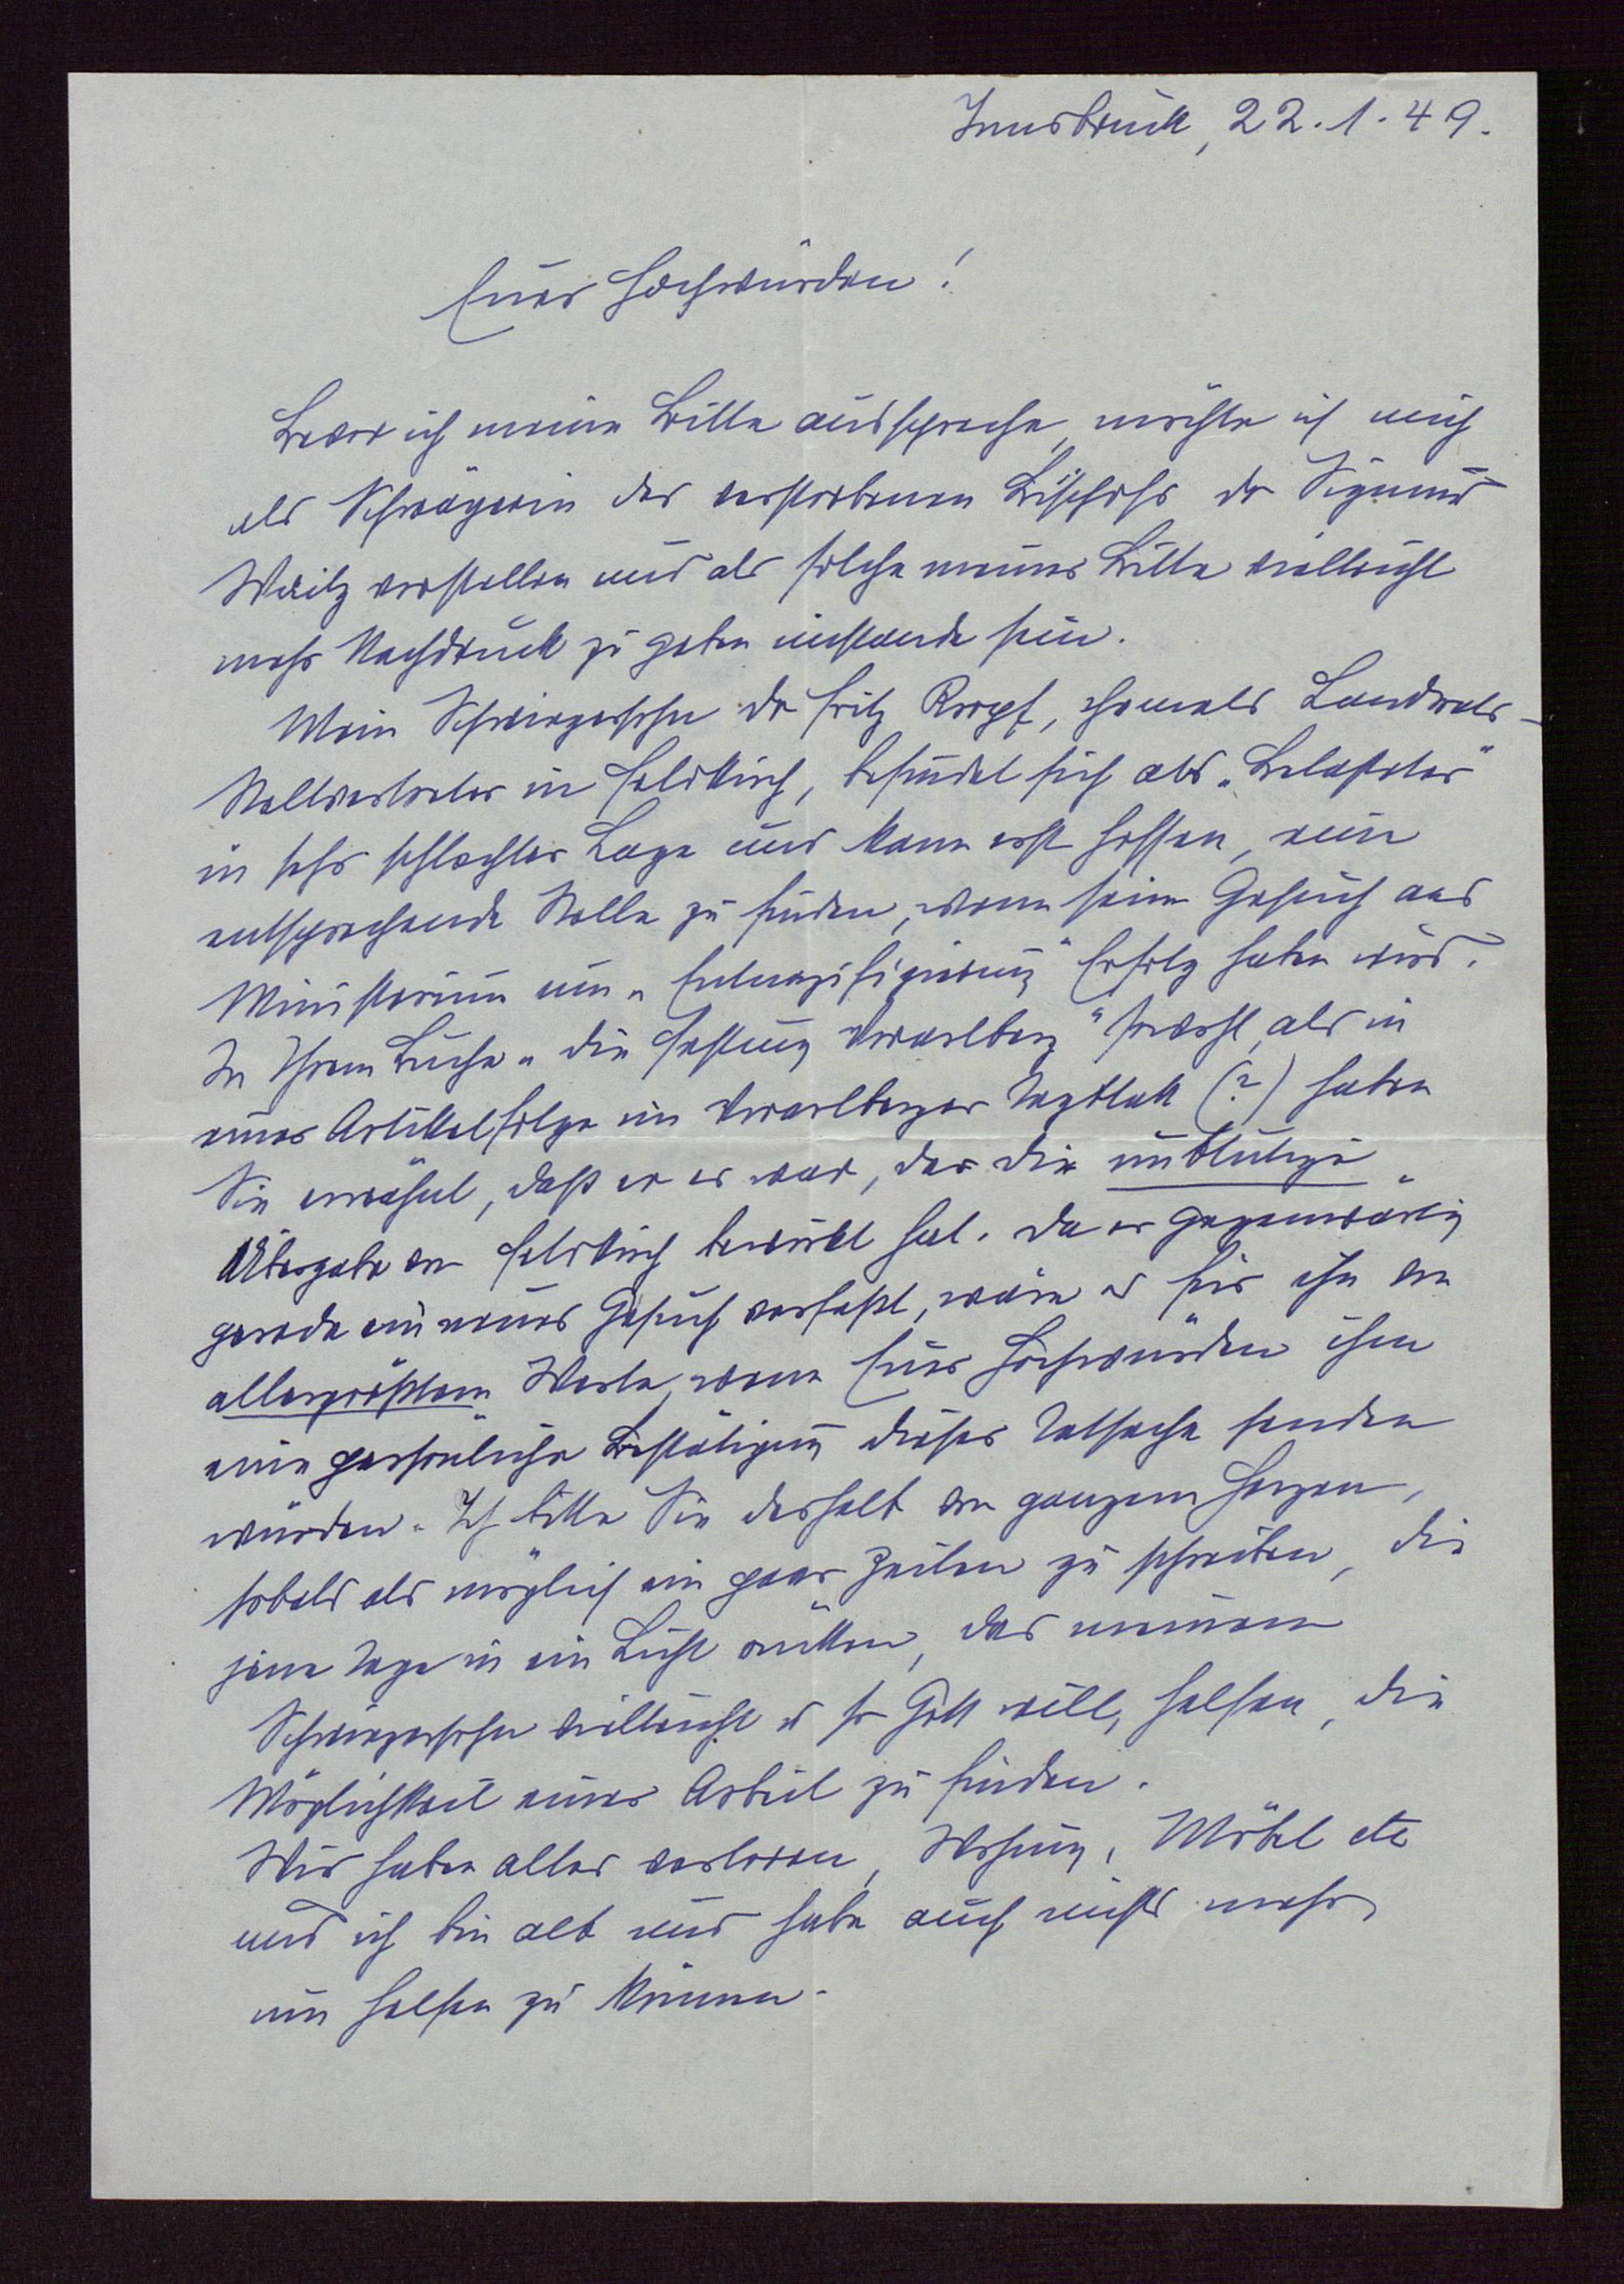 Innsbruck, 22.1.49.
Euer Hochwürden!
Bevor ich meine Bitte ausspreche, möchte ich mich
als Schwägerin des verstorbenen Bischofs Dr Sigmund
Waitz vorstellen und als solche meiner Bitte vielleicht
mehr Nachdruck zu geben imstande sein.
Mein Schwiegersohn Dr Fritz Kropf, ehemals Landrats-
Stellvertreter in Feldkirch, befindet sich als „Belasteter"
in sehr schlechter Lage und kann erst hoffen, eine
entsprechende Stelle zu finden, wenn sein Gesuch ans
Ministerium um „Entnazifizierung" Erfolg haben wird.
In Ihrem Buche „die Festung Vorarlberg" sowohl, als in
einer Artikelfolge im Vorarlberger Tagblatt (?) haben
Sie erwähnt, daß er es war, der die unblutige
Übergabe von Feldkirch bewirkt hat. Da er gegenwärtig
gerade ein neues Gesuch verfaßt, wäre es für ihn von
allergrößtem Werte, wenn Euer Hochwürden ihm
eine persönliche Bestätigung dieser Tatsache senden
würden. Ich bitte Sie deshalb von ganzem Herzen,
sobald als möglich ein paar Zeilen zu schreiben, die
jene Tage in ein Licht rücken, das meinem
Schwiegersohn vielleicht u so Gott will, helfen, die
Möglichkeit einer Arbeit zu finden.
Wir haben alles verloren, Wohnung, Möbel etc
und ich bin alt und habe auch nichts mehr,
um helfen zu können.